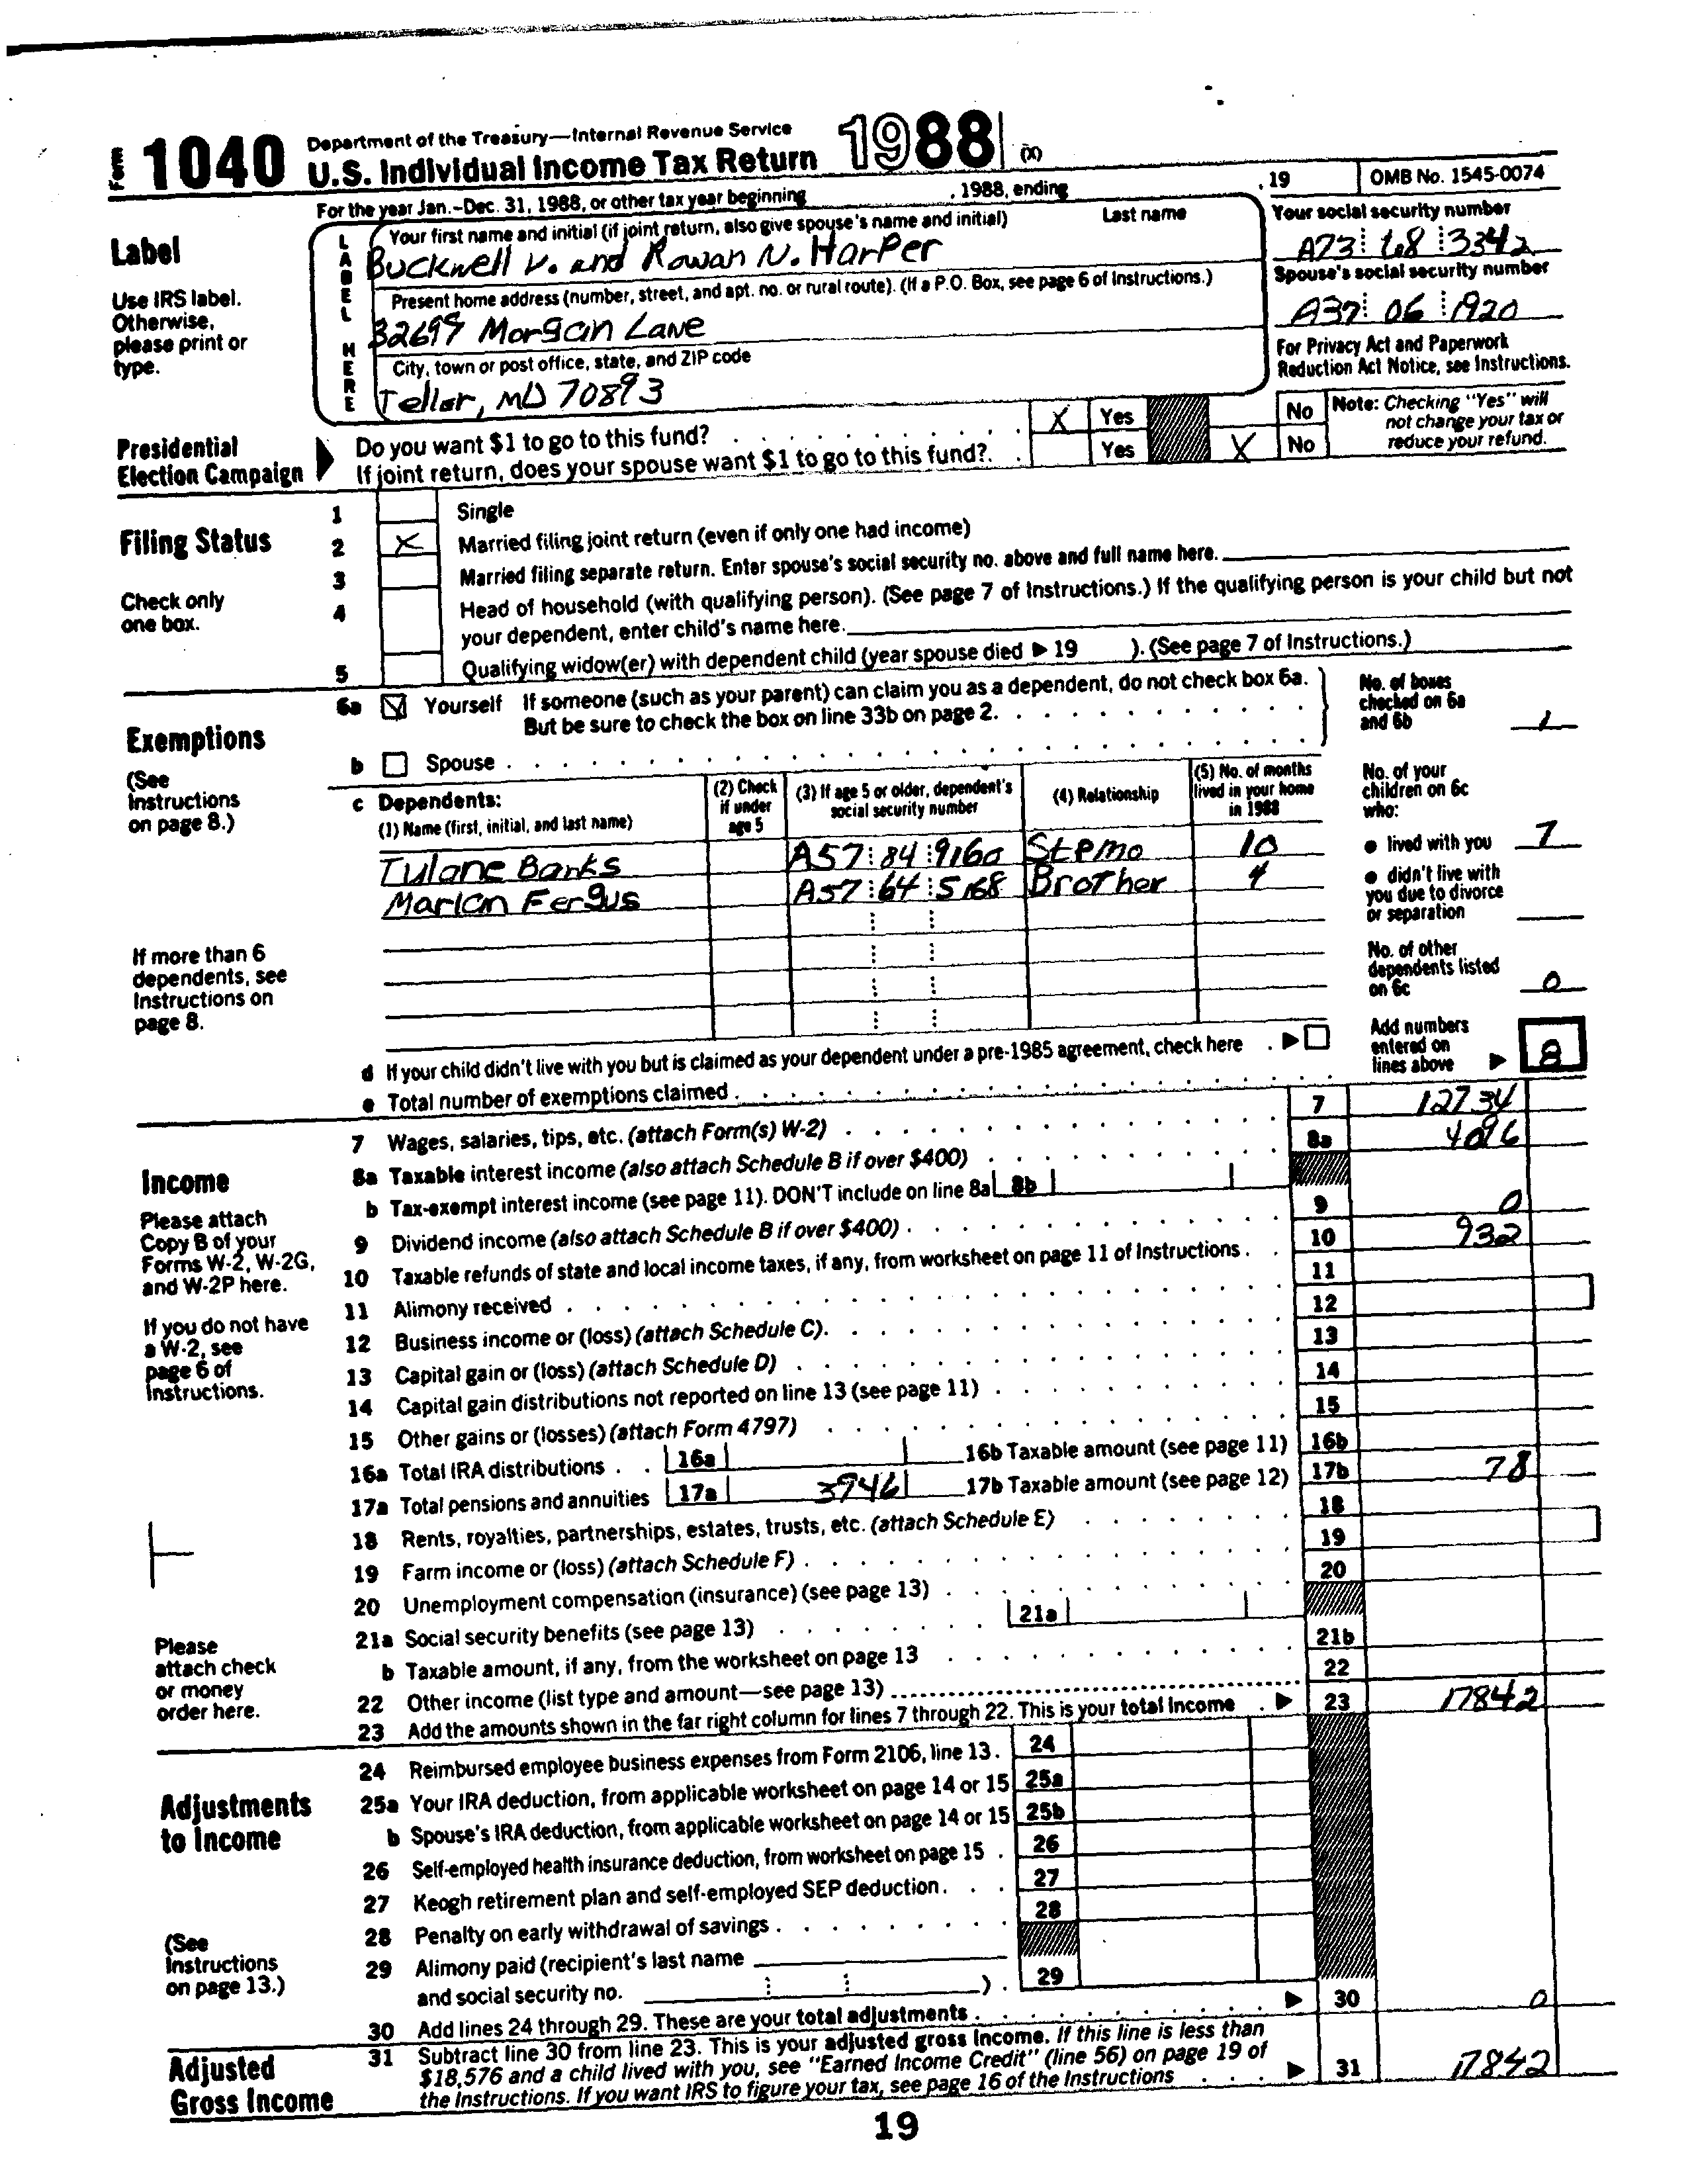 Form 1040 Department of the Treasury—Internal Revenue Service
U.S. Individual Income Tax Return 1988 (X)
For the year Jan.-Dec. 31, 1988, or other tax year beginning , 1988, ending , 19 OMB No. 1545-0074
Label
Use IRS label.
Otherwise,
please print or
type.
LABEL HERE
Your first name and initial (if joint return, also give spouse's name and initial) Last name
Bucknell V. and Rowan N. Harper
Present home address (number, street, and apt. no. or rural route). (If a P.O. Box, see page 6 of Instructions.)
32699 Morgan Lane
City, town or post office, state, and ZIP code
Teller, MD 70893
Your social security number
A73 68 3342
Spouse's social security number
A37 06 1920
For Privacy Act and Paperwork
Reduction Act Notice, see Instructions.
Presidential
Election Campaign
Do you want $1 to go to this fund? X Yes No
If joint return, does your spouse want $1 to go to this fund?. Yes X No
Note: Checking "Yes" will
not change your tax or
reduce your refund.
Filing Status
Check only
one box.
1 Single
2 X Married filing joint return (even if only one had income)
3 Married filing separate return. Enter spouse's social security no. above and full name here.
4 Head of household (with qualifying person). (See page 7 of Instructions.) If the qualifying person is your child but not
your dependent, enter child's name here.
5 Qualifying widow(er) with dependent child (year spouse died ▶ 19 ). (See page 7 of Instructions.)
Exemptions
(See
Instructions
on page 8.)
6a Yourself If someone (such as your parent) can claim you as a dependent, do not check box 6a.
But be sure to check the box on line 33b on page 2.
b Spouse
No. of boxes
checked on 6a
and 6b 1
c Dependents:
(1) Name (first, initial, and last name)
(2) Check
if under
age 5
(3) If age 5 or older, dependent's
social security number
(4) Relationship
(5) No. of months
lived in your home
in 1988
Tulane Banks A57 84 9160 Stepmo 10
Marian Fergus A57 64 5168 Brother 4
No. of your
children on 6c
who:
● lived with you 7
● didn't live with
you due to divorce
or separation
No. of other
dependents listed
on 6c 0
Add numbers
entered on
lines above ▶ 8
If more than 6
dependents, see
Instructions on
page 8.
d If your child didn't live with you but is claimed as your dependent under a pre-1985 agreement, check here . ▶
e Total number of exemptions claimed
Income
Please attach
Copy B of your
Forms W-2, W-2G,
and W-2P here.
If you do not have
a W-2, see
page 6 of
Instructions.
Please
attach check
or money
order here.
7 Wages, salaries, tips, etc. (attach Form(s) W-2) 7 12734
8a Taxable interest income (also attach Schedule B if over $400) 8a 4096
b Tax-exempt interest income (see page 11). DON'T include on line 8a 8b
9 Dividend income (also attach Schedule B if over $400) 9 0
10 Taxable refunds of state and local income taxes, if any, from worksheet on page 11 of Instructions 10 932
11 Alimony received 11
12 Business income or (loss) (attach Schedule C). 12
13 Capital gain or (loss) (attach Schedule D) 13
14 Capital gain distributions not reported on line 13 (see page 11) 14
15 Other gains or (losses) (attach Form 4797) 15
16a Total IRA distributions 16a 16b Taxable amount (see page 11) 16b
17a Total pensions and annuities 17a 3946 17b Taxable amount (see page 12) 17b 78
18 Rents, royalties, partnerships, estates, trusts, etc. (attach Schedule E) 18
19 Farm income or (loss) (attach Schedule F) 19
20 Unemployment compensation (insurance) (see page 13) 20
21a Social security benefits (see page 13) 21a
b Taxable amount, if any, from the worksheet on page 13 21b
22 Other income (list type and amount—see page 13) 22
23 Add the amounts shown in the far right column for lines 7 through 22. This is your total income ▶ 23 17842
Adjustments
to Income
(See
Instructions
on page 13.)
24 Reimbursed employee business expenses from Form 2106, line 13. 24
25a Your IRA deduction, from applicable worksheet on page 14 or 15 25a
b Spouse's IRA deduction, from applicable worksheet on page 14 or 15 25b
26 Self-employed health insurance deduction, from worksheet on page 15 26
27 Keogh retirement plan and self-employed SEP deduction. 27
28 Penalty on early withdrawal of savings 28
29 Alimony paid (recipient's last name
and social security no. ) . 29
30 Add lines 24 through 29. These are your total adjustments ▶ 30 0
Adjusted
Gross Income
31 Subtract line 30 from line 23. This is your adjusted gross income. If this line is less than
$18,576 and a child lived with you, see "Earned Income Credit" (line 56) on page 19 of
the Instructions. If you want IRS to figure your tax, see page 16 of the Instructions ▶ 31 17842
19